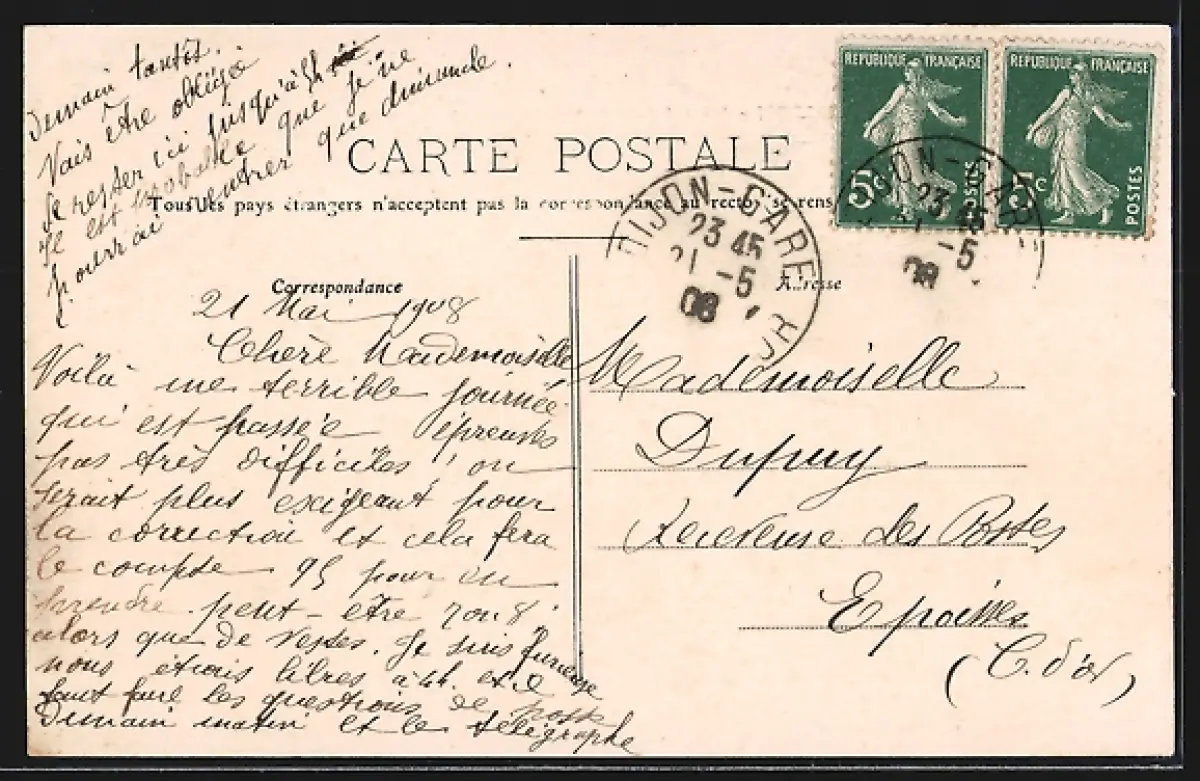 Demain tantôt.
Vais être obligée
de rester ici jusqu'à 5h
Il est probable que je ne
pourrai rentrer que dimanche.
RÉPUBLIQUE FRANÇAISE
5c
POSTES
RÉPUBLIQUE FRANÇAISE
5c
POSTES
CARTE POSTALE
Tous les pays étrangers n'acceptent pas la correspondance au recto, se rens
DIJON-GARE
23 45
21 -5
08
DIJON-GARE
23 45
-5
08
Correspondance
Adresse
21 Mai 1908
Chère Mademoiselle
Voilà une terrible journée
qui est passée épreuves
pas très difficiles, on
serait plus exigeant pour
la correction et cela fera
le compte 95 pour en
prendre peut-être 7 ou 8,
alors que de vestes. Je suis furieuse
nous étions libres à 4h. et il
faut faire les questions de poste
Demain matin et le télégraphe
Mademoiselle
Dupuy
Receveuse des Postes
Epoisses
(C. d'or)